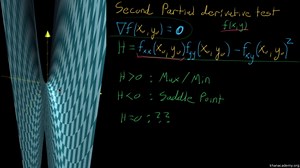 Second Partial derivative test
∇f(x₀, y₀) = 0 f(x,y)
H = fxx(x₀, y₀)fyy(x₀, y₀) − fxy(x₀, y₀)²
H>0 : Max/Min
H<0 : Saddle Point
H=0 : ??
khanacademy.org